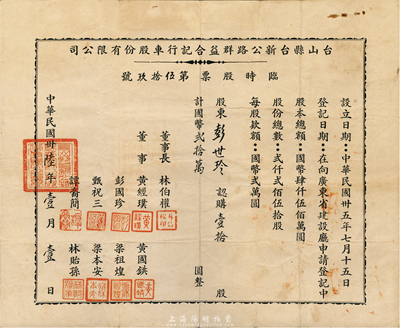 台山縣台新公路群益合記行車股份有限公司
臨時股票第伍拾玖號
設立日期：中華民國卅五年七月十五日
登記日期：在向廣東省建設廳申請登記中
股本總額：國幣肆仟伍佰萬圓
股份總數：弍仟弍佰伍拾股
每股款額：國幣弍萬圓
股東 彭世珍 認購壹拾股
計國幣弍拾萬圓整
董事長 林伯權
董事 黃經璞 黃國鉷
彭國珍 梁祖煌
甄祝三 梁本安
譚裔簡 林貽孫
中華民國卅陸年壹月壹日